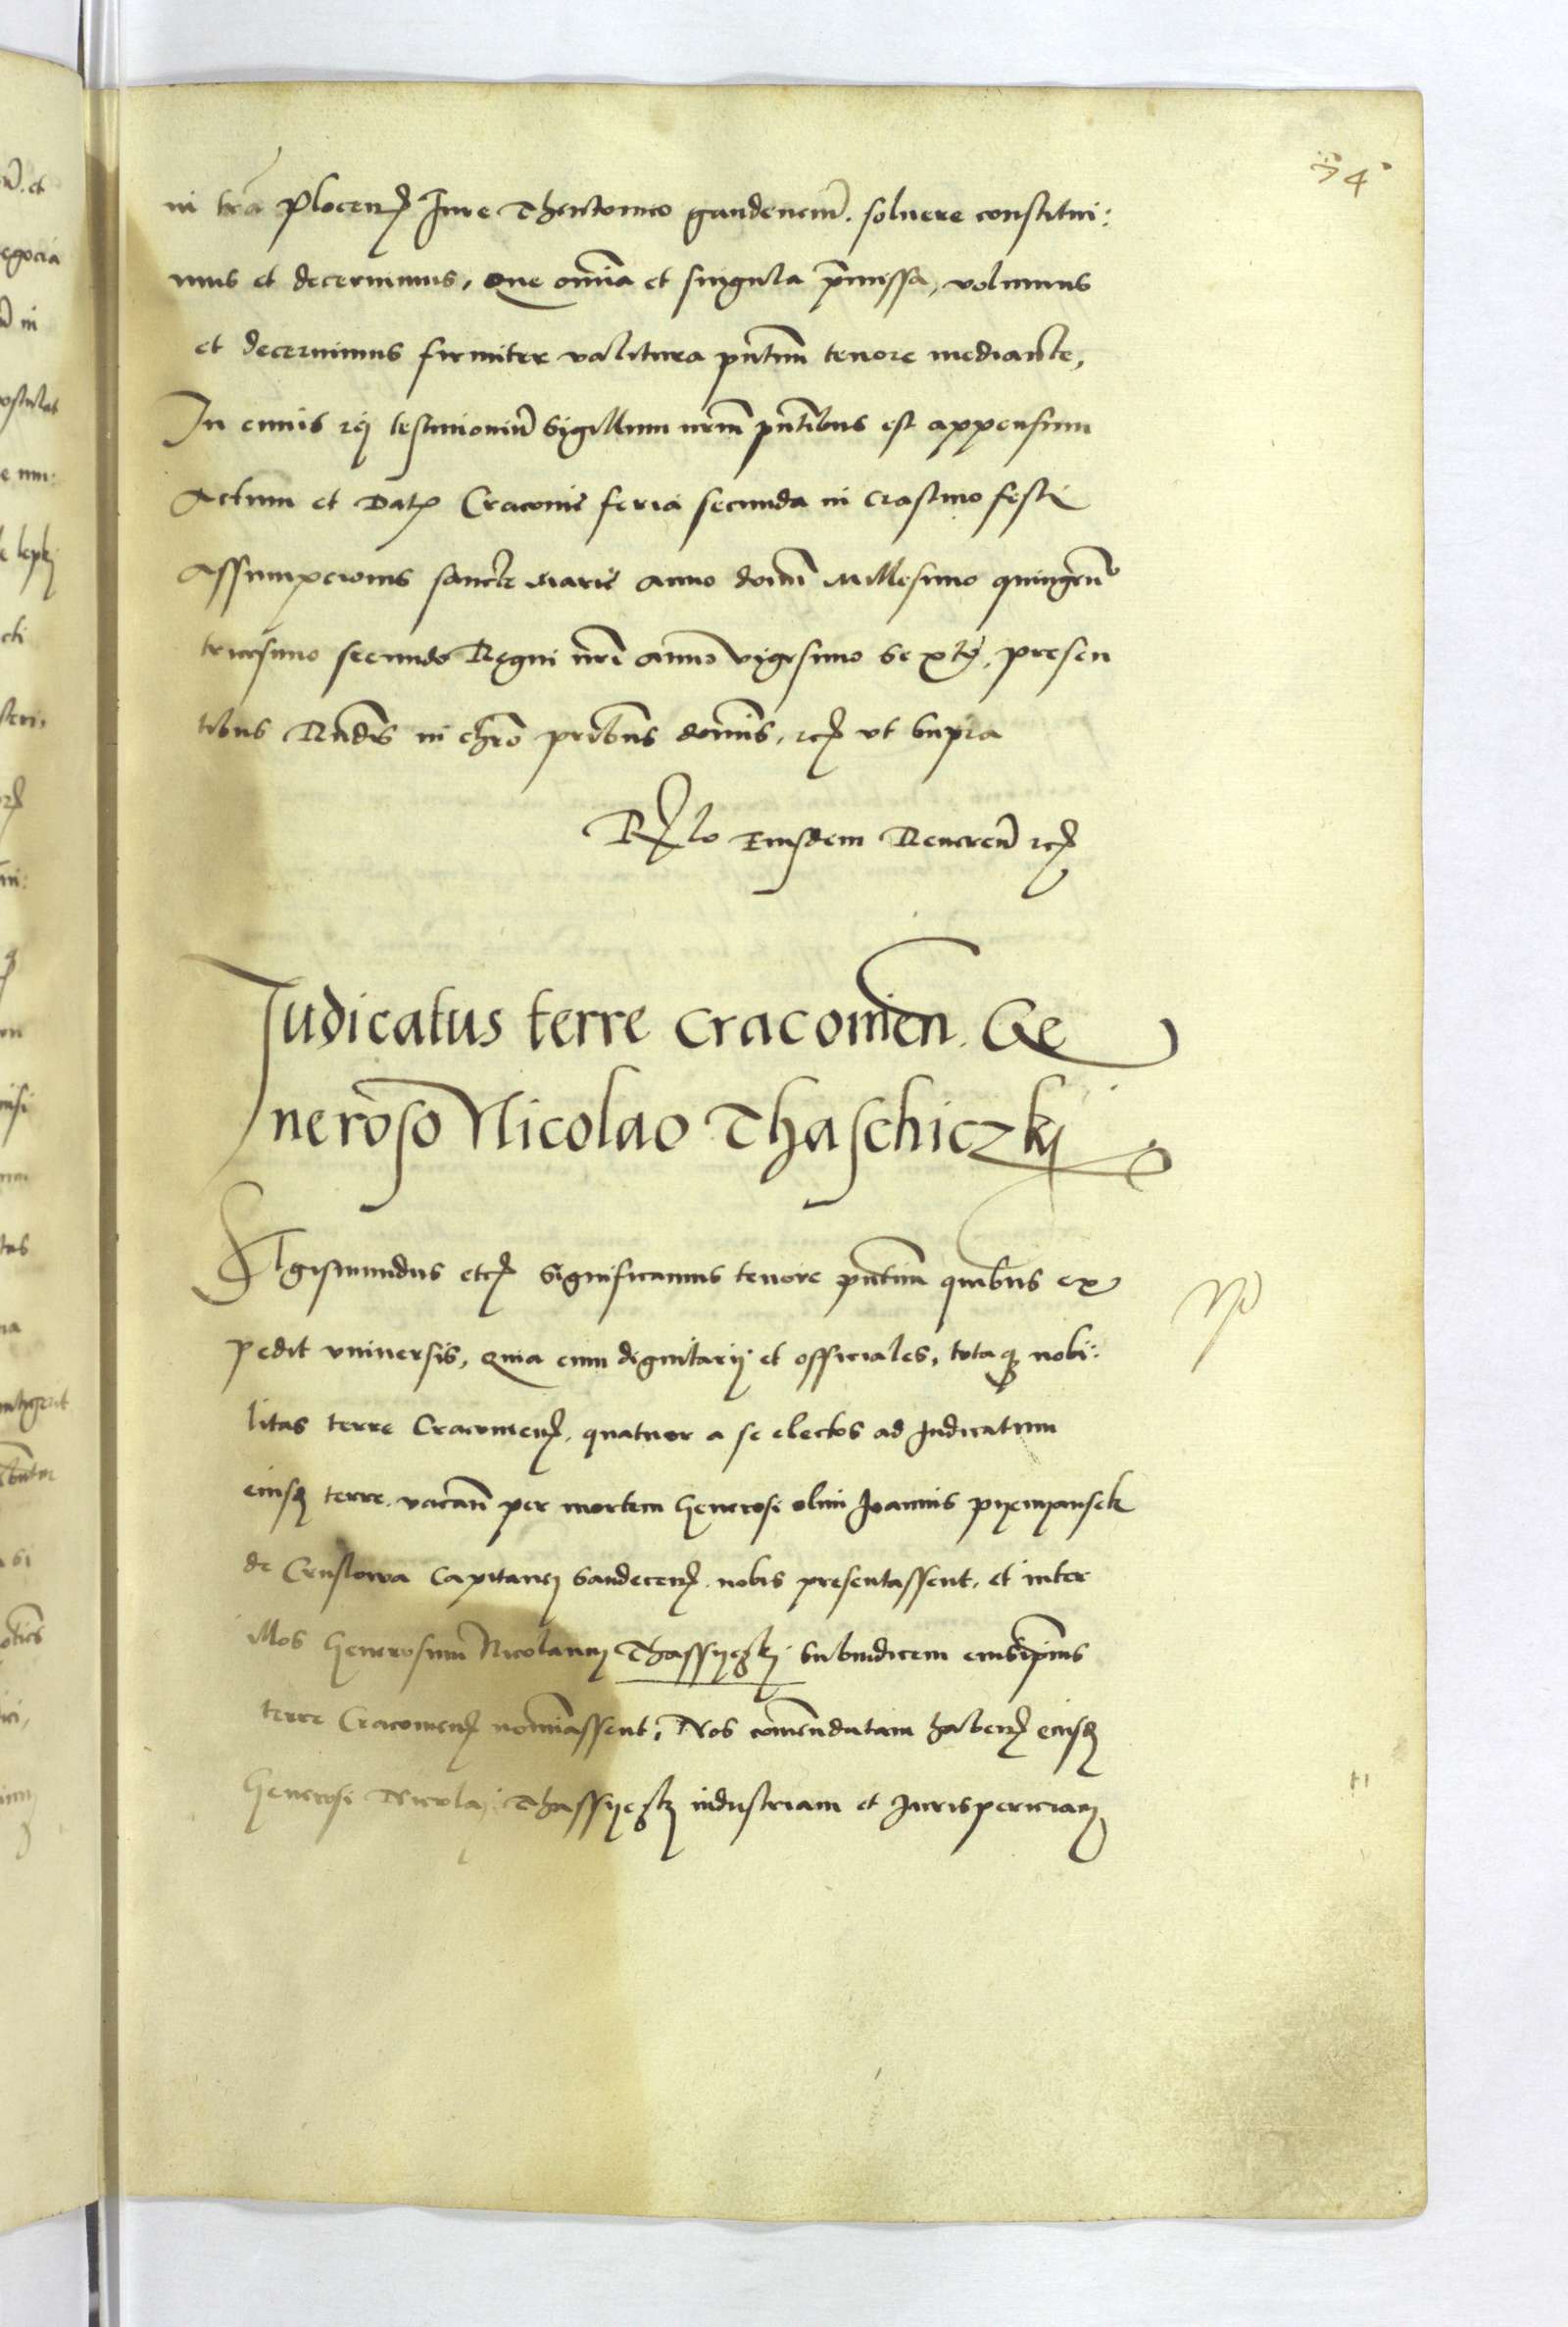 34
in tra Plocen Jure Thewtonico gauden. soluere constitui:
mus et decernimus, Que omia et singula pmissa, volumus
et decernimus firmiter valitura pntium tenore mediante,
In cuius rei testimoniu Sigillum nrm pntibus est appensum
Actum et Dat Cracovie feria secunda in crastino festi
Assumpcionis sancte Marie Anno domi Millesimo quingen
tricesimo secundo Regni nri anno vigesimo Sexto, presen
tibus Rndis in chro pribus domis, etc vt supra
Rlo Eiusdem Reueren etc
Judicatus terre cracovien. Ge
neroso Nicolao Thaschiczkj
SIgismundus etc Significamus tenore pntium quibus ex
pedit vniuersis, Quia cum dignitarij et officiales, totaq nobi:
litas terre Cracovien, quatuor a se electos ad Judicatum
eiusd terre vacan per mortem Generosi olim Joannis pyenyanschk
de Cruslowa Capitanei Sandecen nobis presentassent, et inter
illos Generosum Nicolaum Thassyczkj Subiudicem eiusipius
terre Cracovien nomiassent, Nos comendatam haben eiusd
Generosi Nicolaj Thassyczkj industriam et Jurispericiam